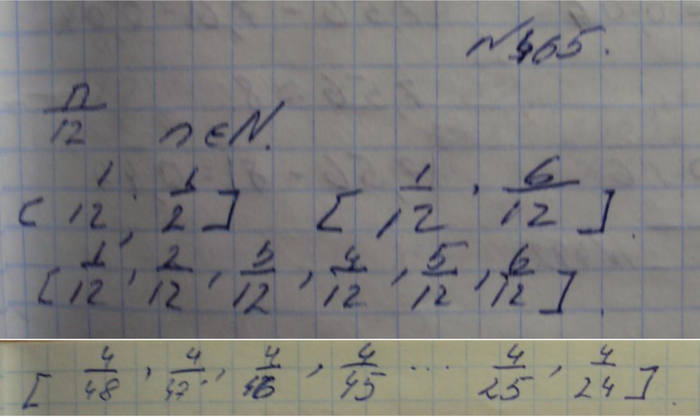 №465.
n/12 n∈N.
( 1/12 ; 1/2 ] [ 1/12 , 6/12 ].
[ 1/12 , 2/12 , 3/12 , 4/12 , 5/12 , 6/12 ].
[ 4/48 , 4/47 , 4/46 , 4/45 ... 4/25 , 4/24 ].